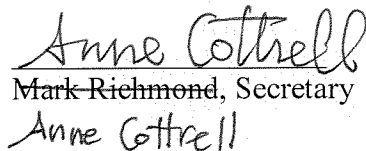 Anne Cottrell
Mark Richmond, Secretary
Anne Cottrell